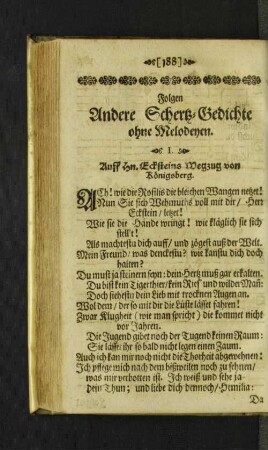 [188]
Folgen
Andere Schertz-Gedichte
ohne Melodeyen.
I.
Auff Hn. Ecksteins Wegzug von
Königsberg.
ACh! wie die Rosilis die bleichen Wangen netzet!
Nun Sie sich Wehmuths voll mit dir / Herr
Eckstein / letzet!
Wie sie die Hände wringt! wie kläglich sie sich
stell't!
Als machtestu dich auff / und zögest auß der Welt.
Mein Freund / was denckstu? wie kanstu dich doch
halten?
Du must ja steinern seyn: dein Hertz muß gar erkalten.
Du bist kein Tigerthier / kein Rieß und wilder Mañ:
Doch siehestu dein Lieb mit trocknen Augen an.
Wol dem / der so mit dir die Lüste lässet fahren!
Zwar Klugheit (wie man spricht) die kommet nicht
vor Jahren.
Die Jugend gibet noch der Tugend keinen Raum:
Sie läßt ihr so bald nicht legen einen Zaum.
Auch ich kan mir noch nicht die Thorheit abgewehnen!
Ich pflege mich nach dem bißweilen noch zu sehnen /
was mir verbotten ist. Ich weiß und sehe ja
Dein Thun; und liebe dich dennoch / Hemilia:
Da